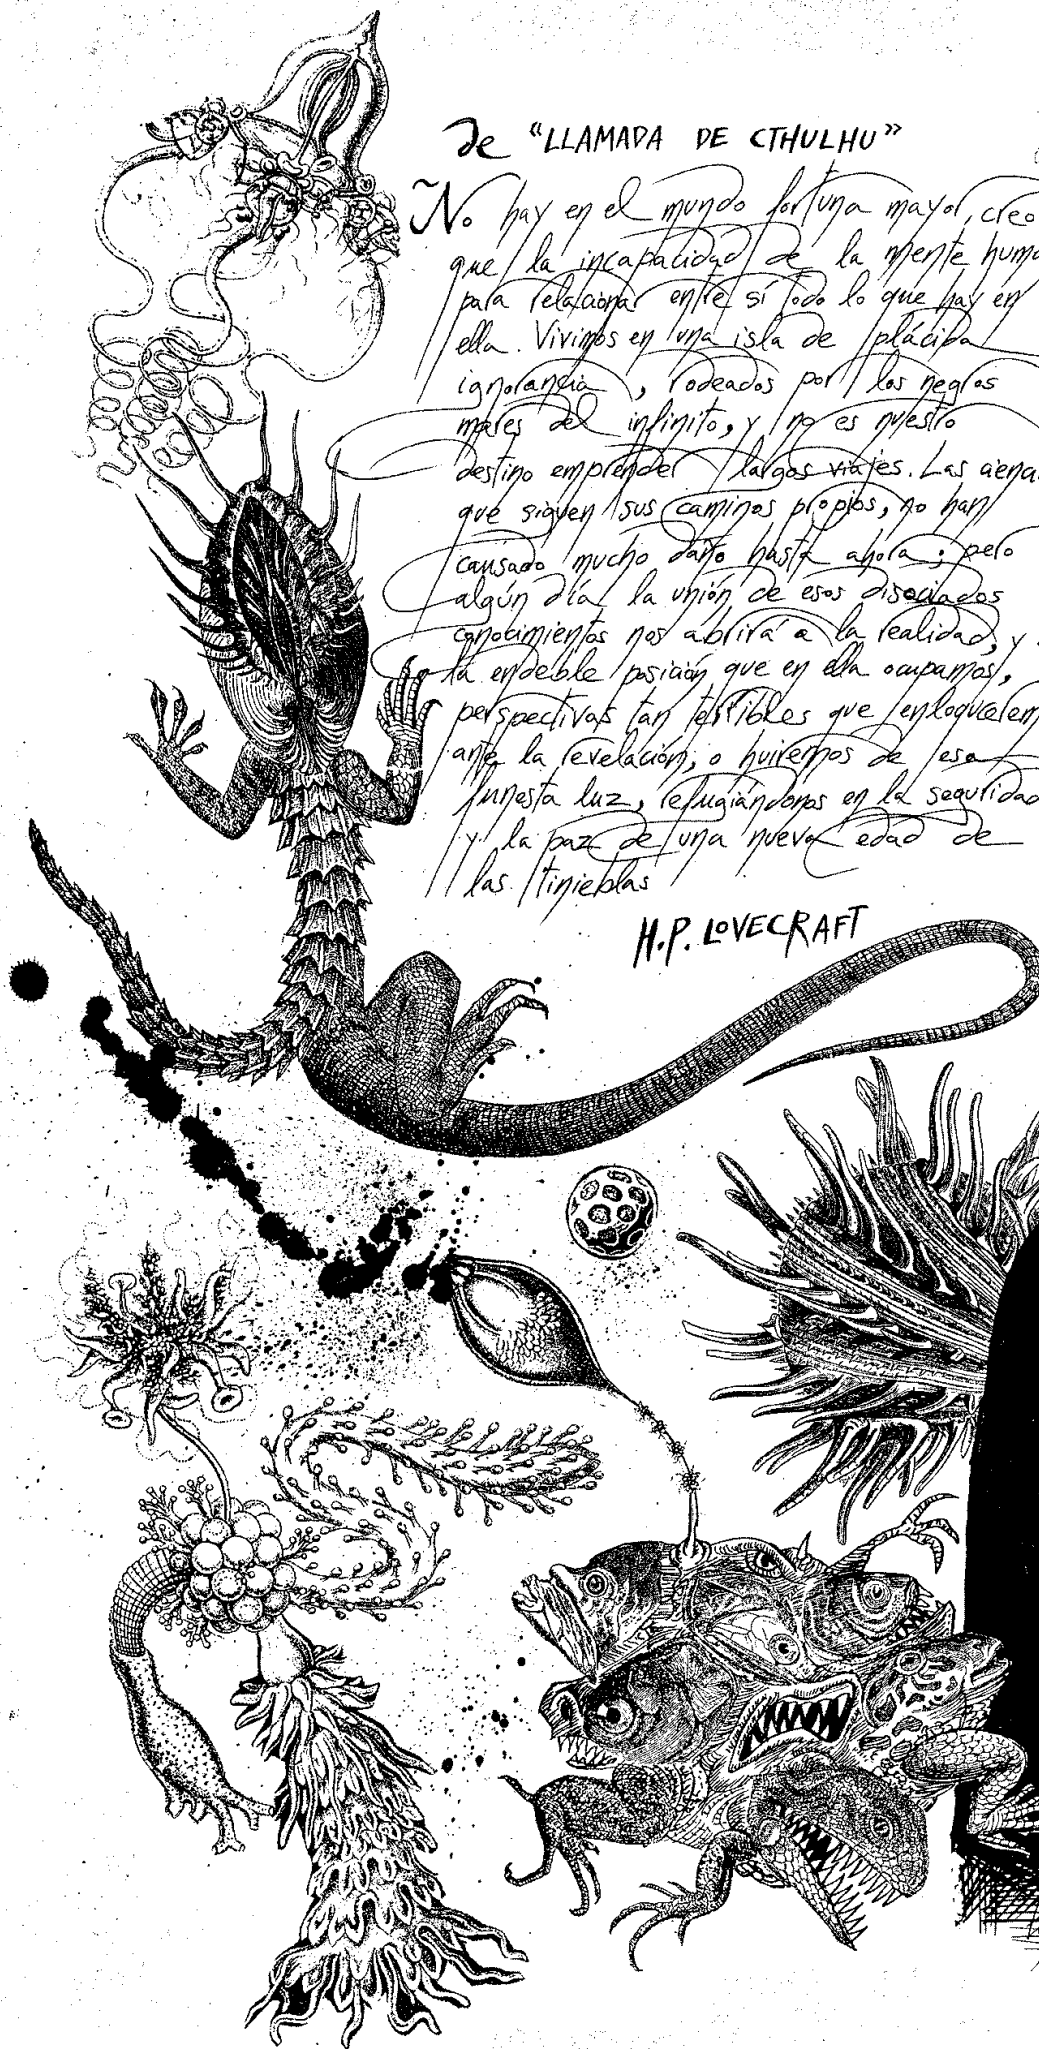 de "LLAMADA DE CTHULHU"
No hay en el mundo fortuna mayor, creo
que la incapacidad de la mente huma
para relacionar entre sí todo lo que hay en
ella. Vivimos en una isla de plácida
ignorancia, rodeados por los negros
mares del infinito, y no es nuestro
destino emprender largos viajes. Las cienc
que siguen sus caminos propios, no han
causado mucho daño hasta ahora; pero
algún día la unión de esos disociados
conocimientos nos abrirá a la realidad, y
la endeble posición que en ella ocupamos,
perspectivas tan terribles que enloquecerem
ante la revelación, o huiremos de esa
funesta luz, refugiándonos en la seguridad
y la paz de una nueva edad de
las tinieblas
H.P. LOVECRAFT